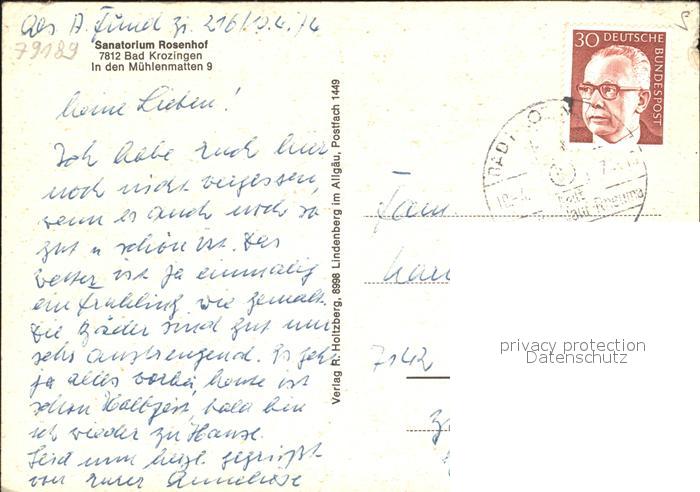 Abs. A. Fund Zi. 216/10.4./4
79189
Sanatorium Rosenhof
7812 Bad Krozingen
In den Mühlenmatten 9
30 DEUTSCHE
BUNDESPOST
meine Lieben!
Ich habe Euch hier
noch nicht vergessen,
wenn es auch noch so
gut u schön ist. Das
Wetter ist ja einmalig
ein Frühling wie gemalt.
Die Bäder sind gut nur
sehr anstrengend. Es geht
ja alles vorbei, heute ist
schon Halbzeit, bald bin
ich wieder zu Hause.
Seid nun herzl. gegrüßt
von Eurer Anneliese
Verlag R. Holtzberg, 8998 Lindenberg im Allgäu, Postfach 1449
BAD
Rheuma
Fam.
7142
privacy protection
Datenschutz